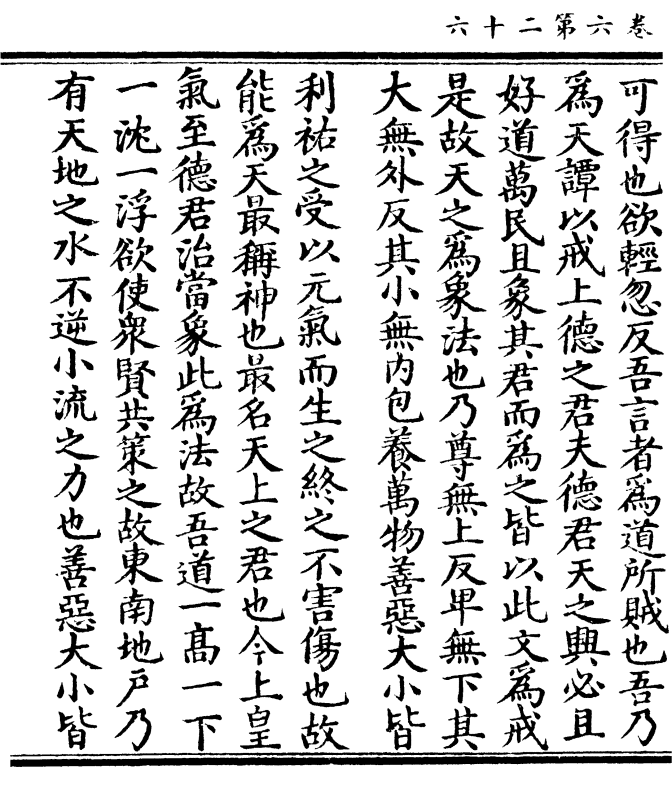 卷六第二十六
可得也欲輕忽反吾言者爲道所賊也吾乃
爲天譚以戒上德之君夫德君天之興必且
好道萬民且象其君而爲之皆以此文爲戒
是故天之爲象法也乃尊無上反卑無下其
大無外反其小無内包養萬物善惡大小皆
利祐之受以元氣而生之終之不害傷也故
能爲天最稱神也最名天上之君也今上皇
氣至德君治當象此爲法故吾道一高一下
一沈一浮欲使衆賢共策之故東南地戸乃
有天地之水不逆小流之力也善惡大小皆